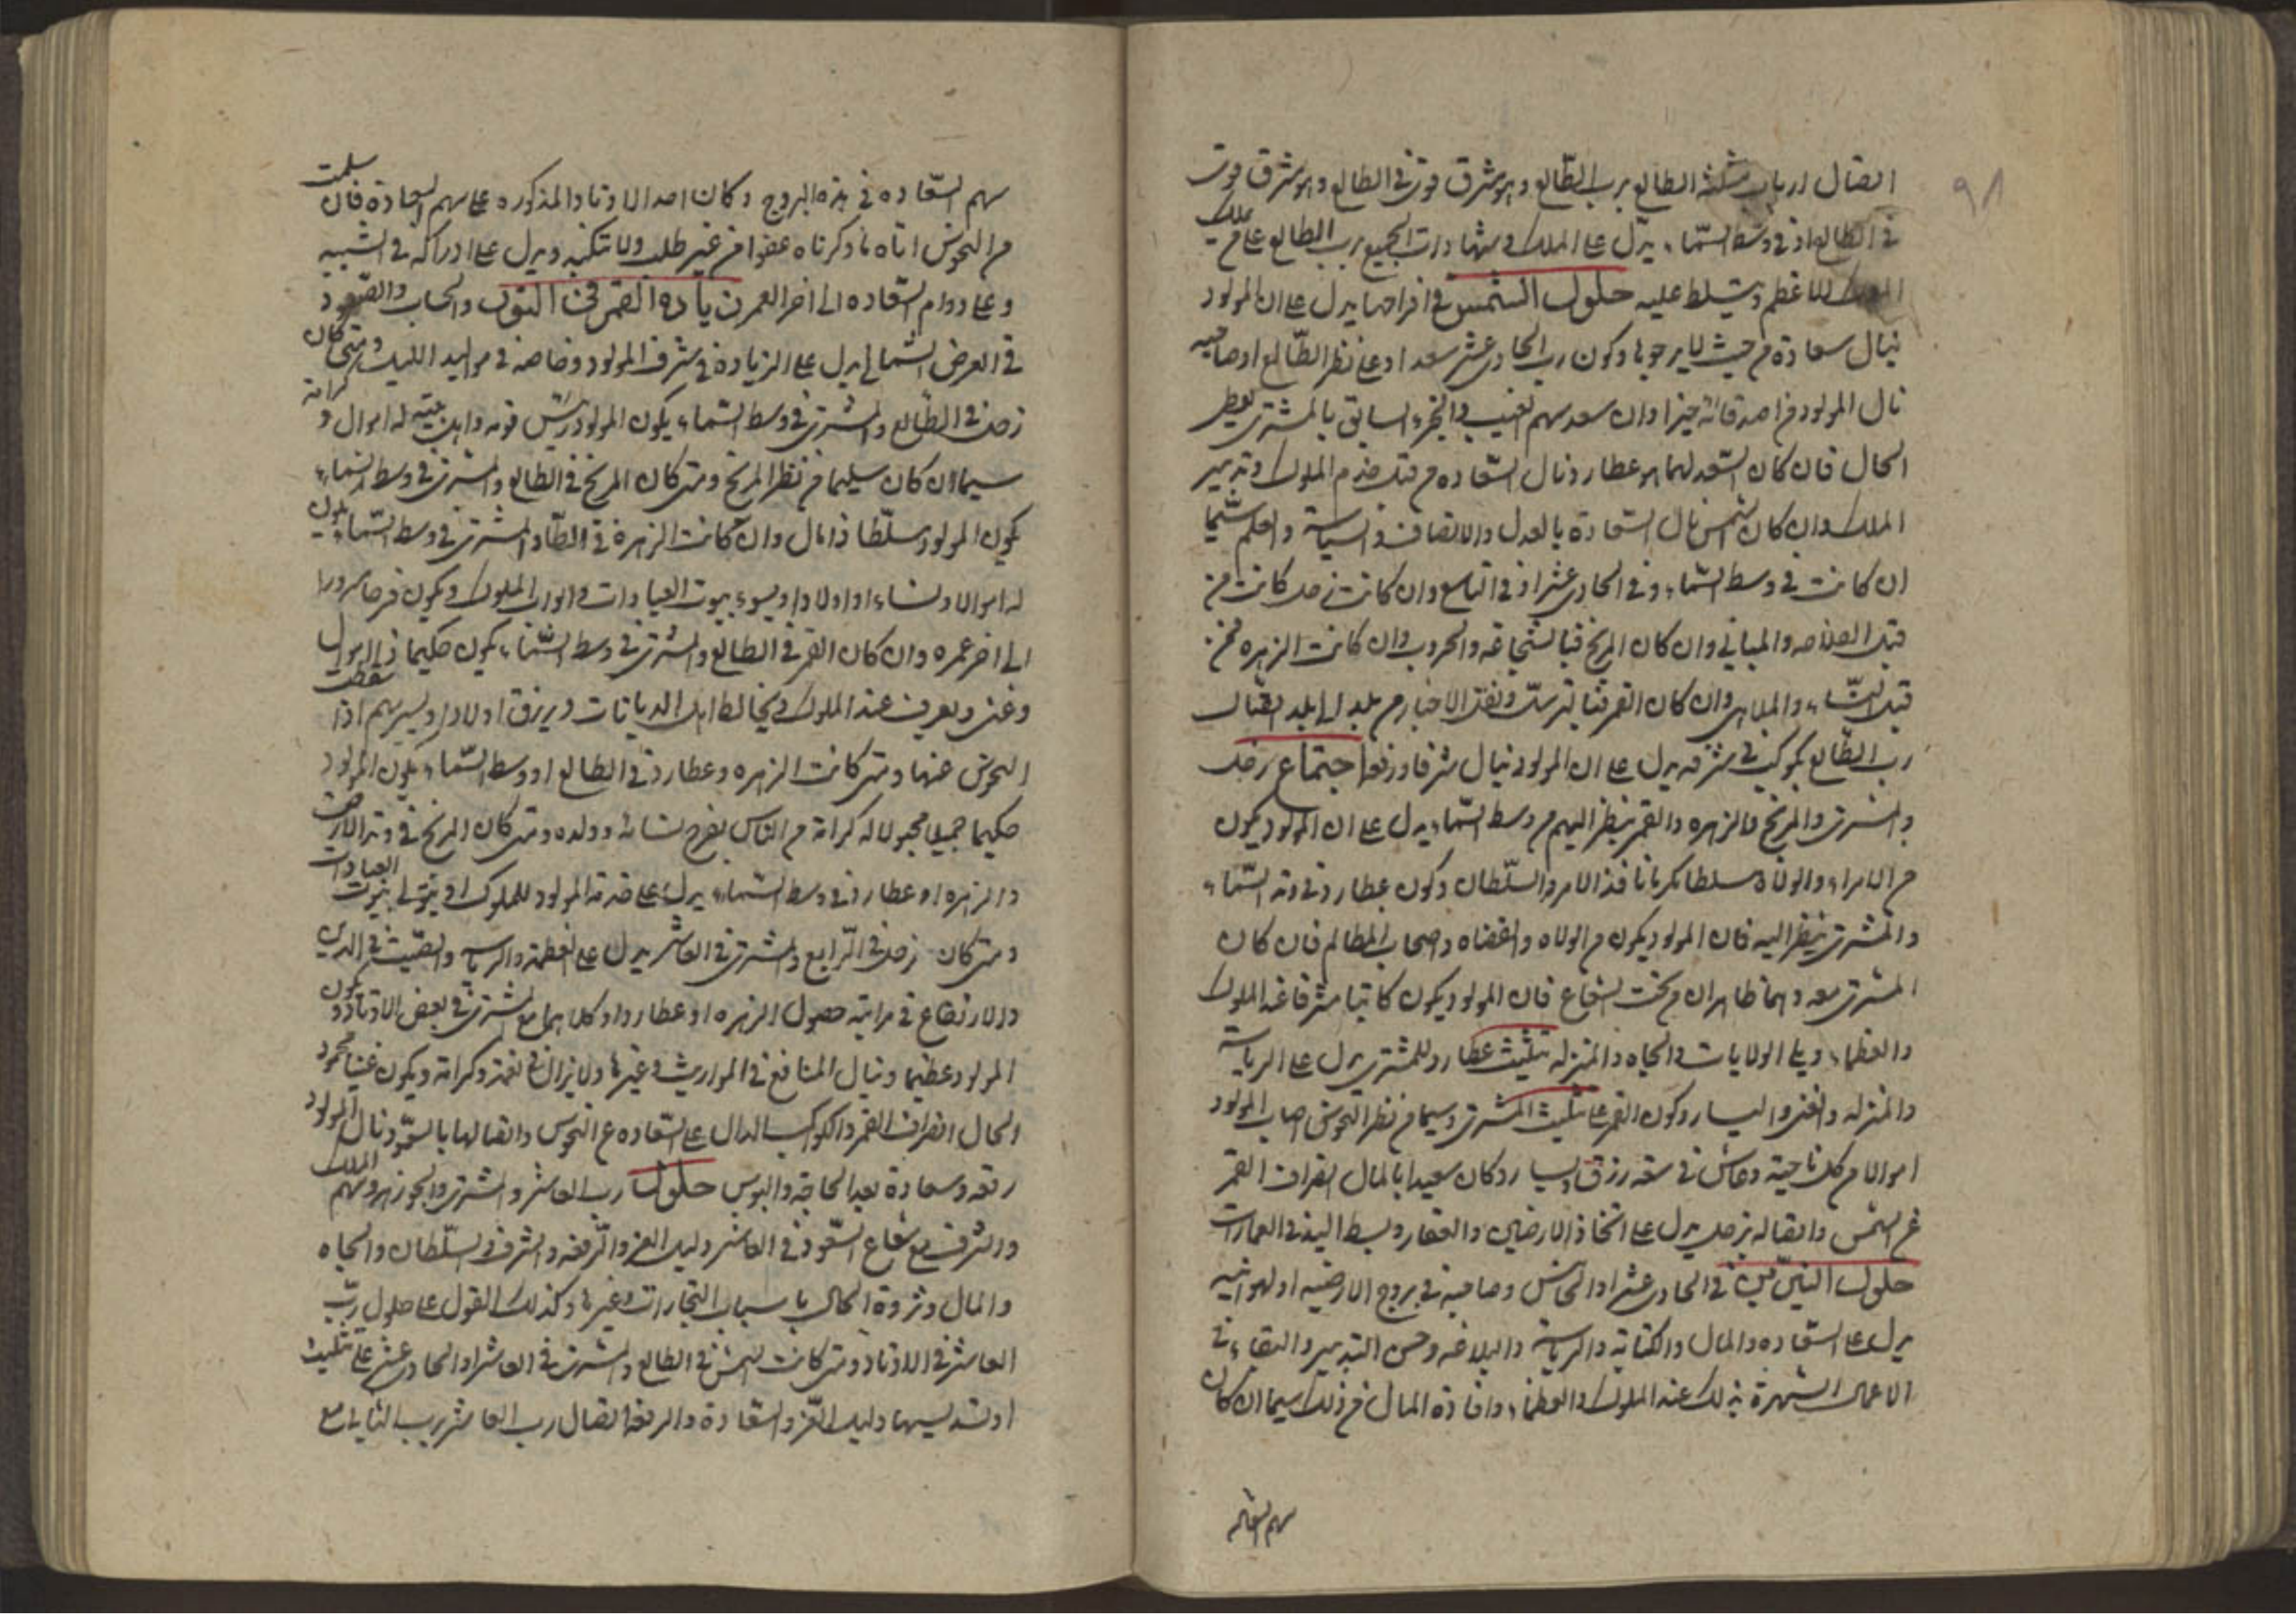 ٩٨
اتصال ارباب مثلثه الطالع برب الطالع وهو مشرق قوى فى الطالع وهو مشرق قوى
فى الطالع او فى وسط السماء يدل على الملك وشهادات الجميع برب الطالع على ملك
الاعظم ويتسلط عليه حلول الشمس فى افراحها يدل على ان المولود
ينال سعادة من حيث لا يرجوها وكون رب الحادى عشر سعدا وعلى نظر الطالع او صاحبه
نال المولود من اصدقائه خيرا وان سعد سهم الغيب والجزء السابق بالمشترى
الحال فان كان السعد لهما هو عطارد نال السعاده من قبل خدم الملوك وتدبير
الملك وان كان شمس نال السعادة بالعدل والانصاف والسياسة والعلم سيما
ان كانت فى وسط السماء وفى الحادى عشر او فى التاسع وان كانت زحل كانت من
قبل الفلاحه والمبانى وان كان المريخ فبالشجاعة والحروب وان كانت الزهره فمن
قبل النساء والملاهى وان كان القمر فبالترسل ونقل الاخبار من بلد الى بلد اتصال
رب الطالع بكوكب فى شرفه يدل على ان المولود ينال شرفا ورفعه اجتماع زحل
والمشترى والمريخ والزهره والقمر ينظر اليهم من وسط السماء يدل على ان المولود يكون
من الامراء والولاة سلطانا نافذ الامر والسلطان وكون عطارد فى وتد السماء
والمشترى ينظر اليه فان المولود يكون من الولاه والقضاه واصحاب المظالم فان كان
المشترى معه وهما ظاهران من تحت الشعاع فان المولود يكون كاتبا مشرفا عند الملوك
والعظماء ويلى الولايات والجاه والمنزله تثليث عطارد للمشترى يدل على الرياسة
والمنزله والغنى واليسار وكون القمر على تثليث المشترى وسيما من نظر النحوس اصاب المولود
اموالا من كل ناحية وعاش فى سعه رزق ويسار وكان سعيدا بالمال انصراف القمر
عن الشمس واتصاله بزحل يدل على اتخاذ الارضين والعقار وبسط اليد فى العمارات
حلول النيرين فى الحادى عشر او الخامس وصاحبه فى بروج الارضيه او الهوائيه
يدل على السعاده والمال والكتابه والرياسة والبلاغه وحسن التدبير والبقاء فى
الاعمال الشهرة بذلك عند الملوك والعظماء وافادة المال من ذلك سيما ان كان
سهم السعاده
سهم السعاده فى هذه البروج وكان احد الاوتاد المذكوره على سهم السعادة فان سلمت
من النحوس اتاه ما ذكرناه عفوا من غير طلب ولا تكبه ويدل على ادراكه فى الشبيبه
وعلى دوام السعاده الى اخر العمر زيادة القمر فى النور والحساب والصعود
فى العرض الشمالى يدل على الزيادة فى شرف المولود وخاصه فى مواليد الليل ومتى كان
زحل فى الطالع والمشترى فى وسط السماء يكون المولود رئيس قومه واهل بيته له اموال وكرامة
سيما ان كان سليما من نظر المريخ ومتى كان المريخ فى الطالع والمشترى فى وسط السماء
يكون المولود سلطا ذا مال وان كانت الزهره فى الطالع والمشترى فى وسط السماء يكون
له اموالا ونساء واولادا ويسوء بيوت العبادات وابواب الملوك ويكون فرحا مسرورا
الى اخر عمره وان كان القمر فى الطالع والمشترى فى وسط السماء يكون حكيما ذا اموال
وغنى ويعرف عند الملوك ويخالط اهل الديانات ويرزق اولادا ويسرهم اذا سقطت
النحوس عنها ومتى كانت الزهره وعطارد فى الطالع او وسط السماء يكون المولود
حكيما جميلا محبوبا له كرامة من الناس يفرح بنسائه وولده ومتى كان المريخ فى وتد الارض
والزهره او عطارد فى وسط السماء يدل على خدمة المولود للملوك او يتولى بيوت العبادات
ومتى كان زحل فى الرابع والمشترى فى العاشر يدل على العظمة والرياسة والصيت فى الدين
والارتفاع فى مراتبه حصول الزهره او عطارد او كلاهما مع المشترى فى بعض الاوتاد يكون
المولود عظيما وينال المنافع فى المواريث وغيرها ولا يزال فى نعمة وكرامة ويكون غنيا محمود
الحال انصراف القمر والكوكب الدال على السعاده عن النحوس واتصالها بالسعود نال المولود
رفعه وسعادة بعد الحاجة والبوس حلول رب العاشر والمشترى والجوزهر وسهم الملك
والشرف مع شعاع السعود فى العاشر دليل العز والرفعه والشرف والسلطان والجاه
والمال وثروة الحال باسباب التجارات وغيرها وكذلك القول على حلول رب
العاشر فى الاوتاد ومتى كانت الشمس فى الطالع والمشترى فى العاشر او الحادى عشر على تثليث
او تسديسها دليل العز والسعادة والرفعه اتصال رب العاشر برب الثانى مع